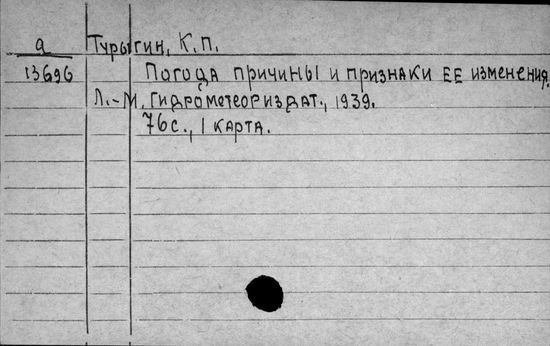 а Турыгин, К.П.
13696 Погода причины и признаки ее изменения.
Л.-М. Гидрометеориздат., 1939.
76с., 1 карта.